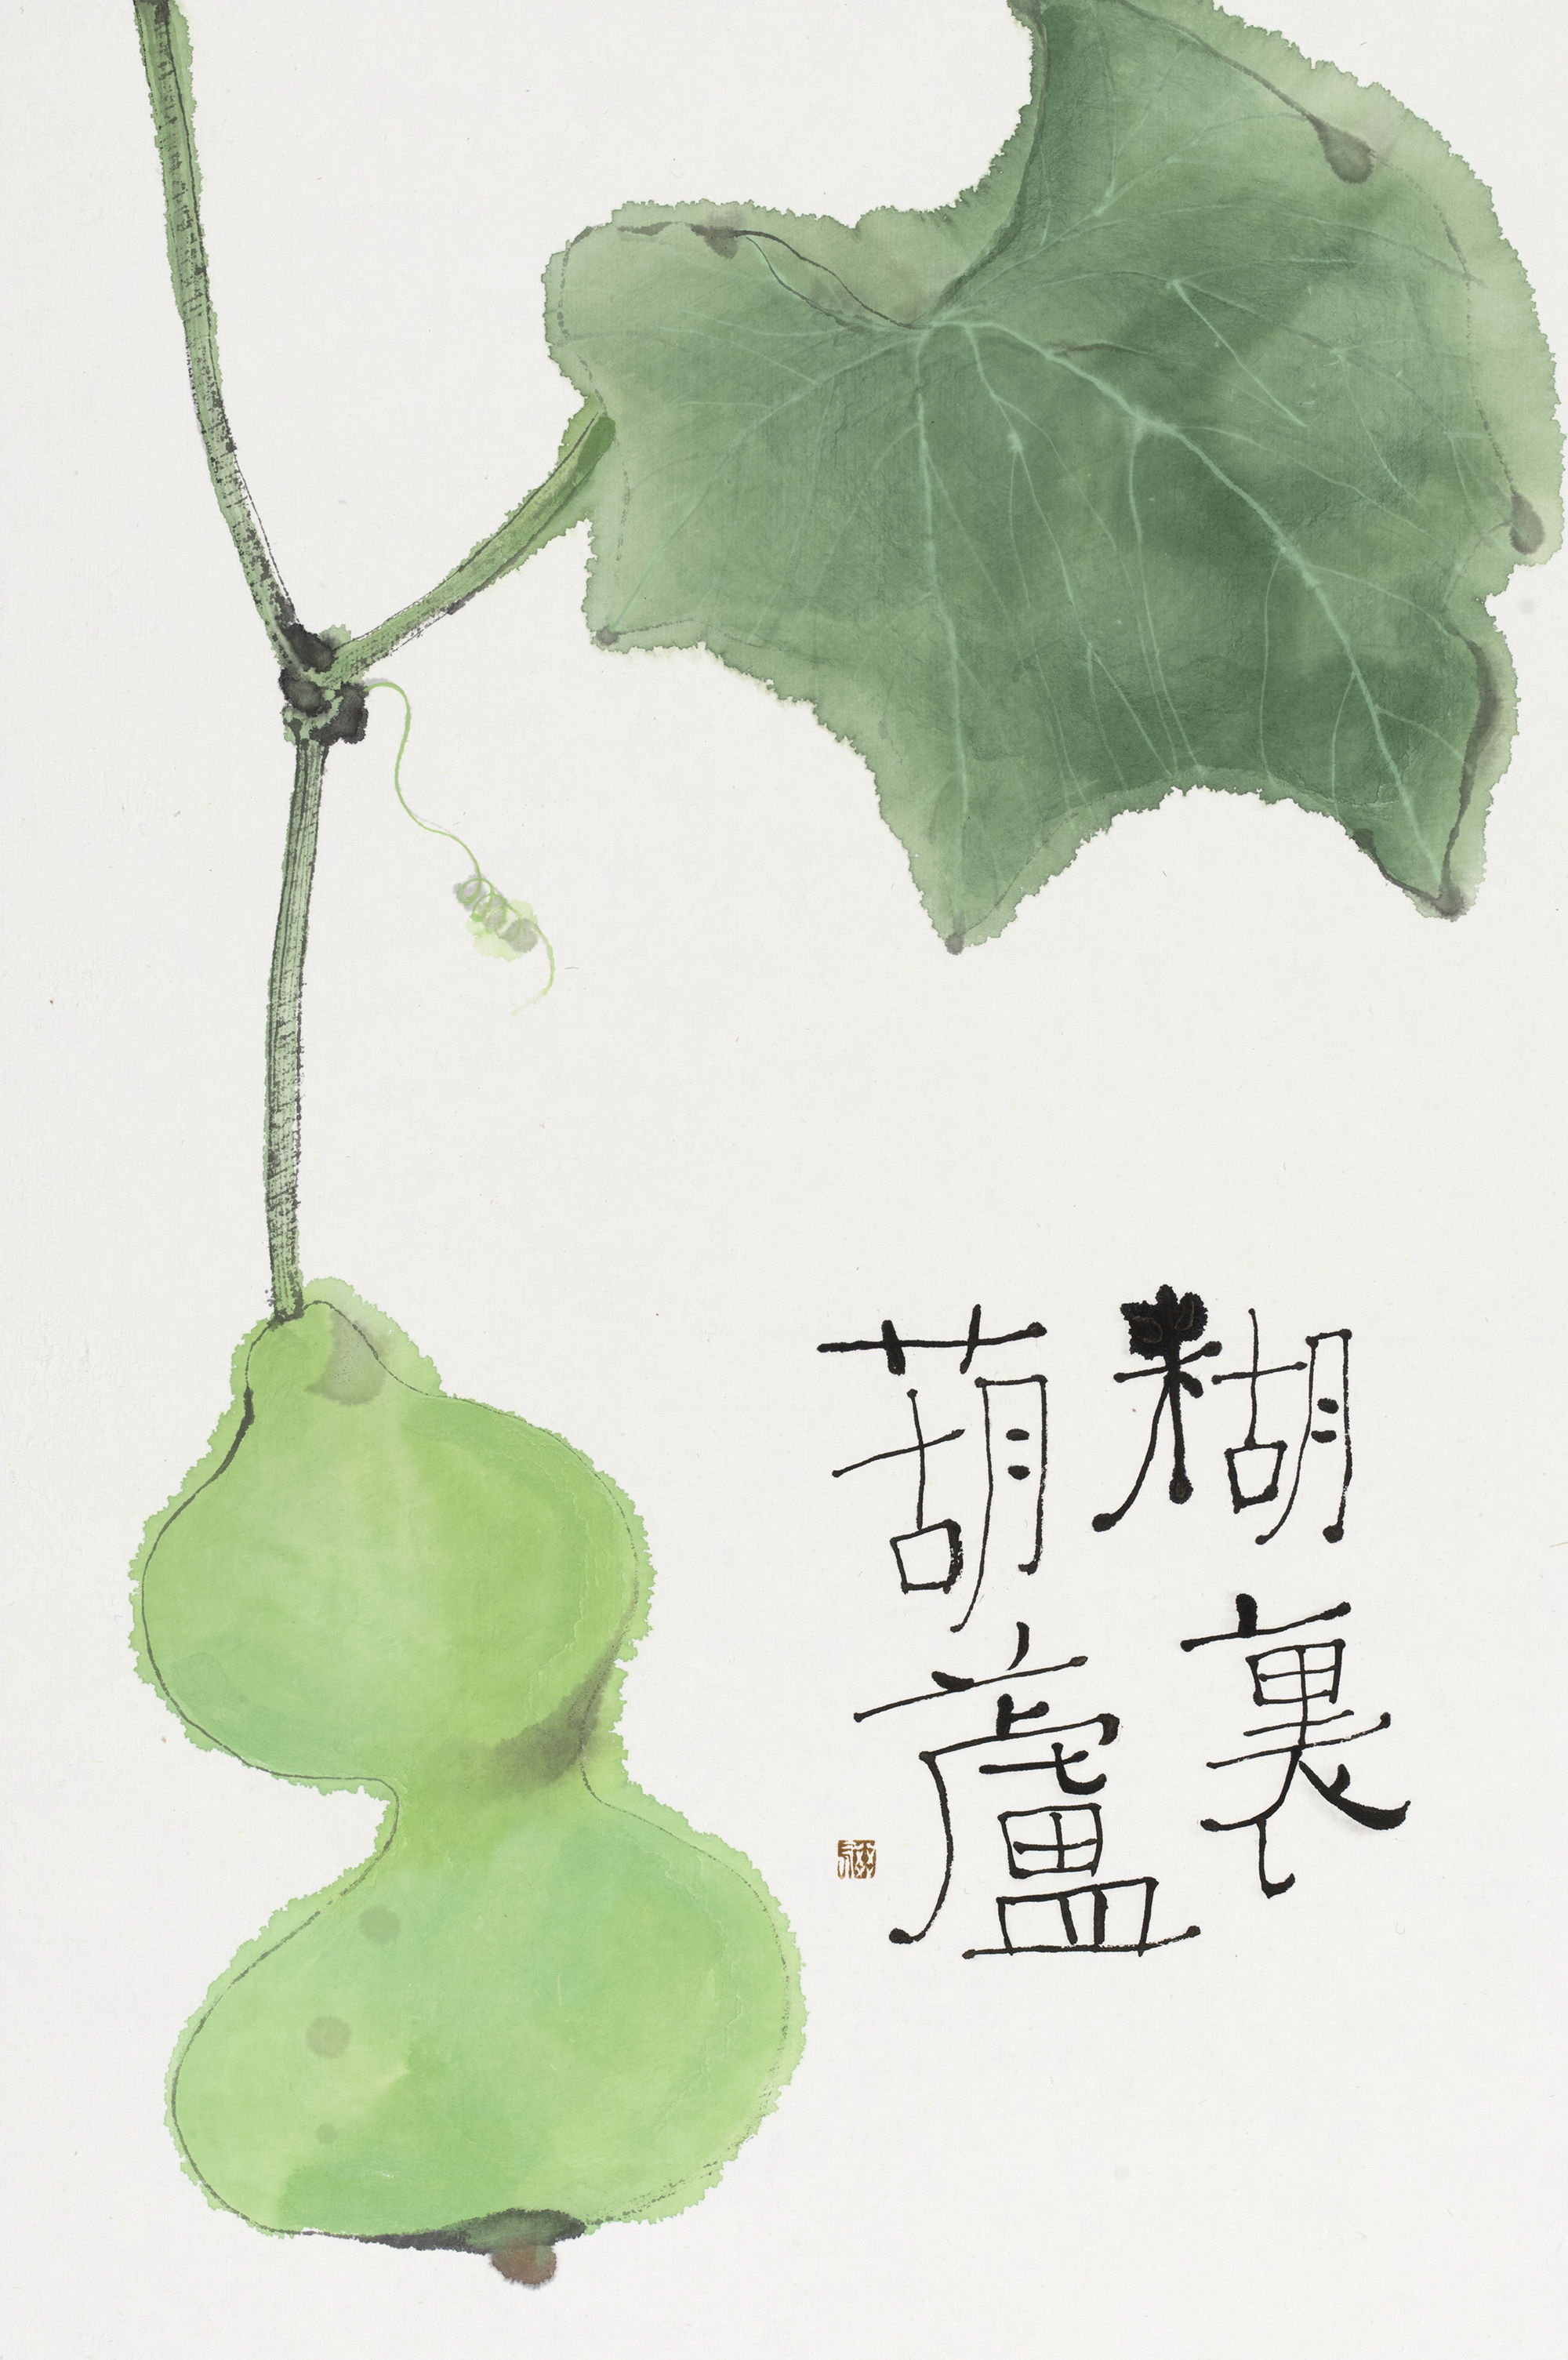 糊裏
葫蘆